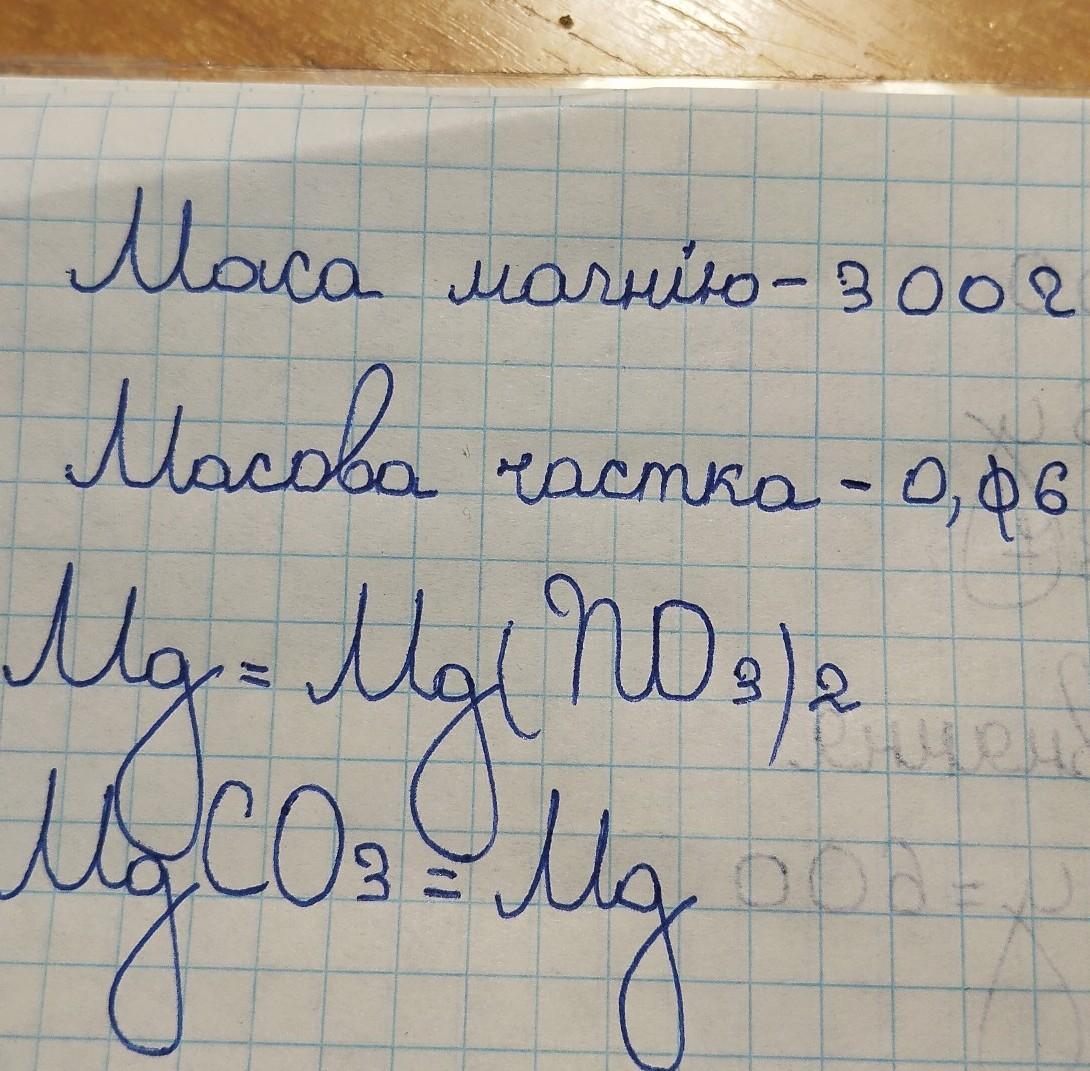 Маса магнію - 300г
Масова частка - 0,96
Mg = Mg(NO3)2
MgCO3 = Mg